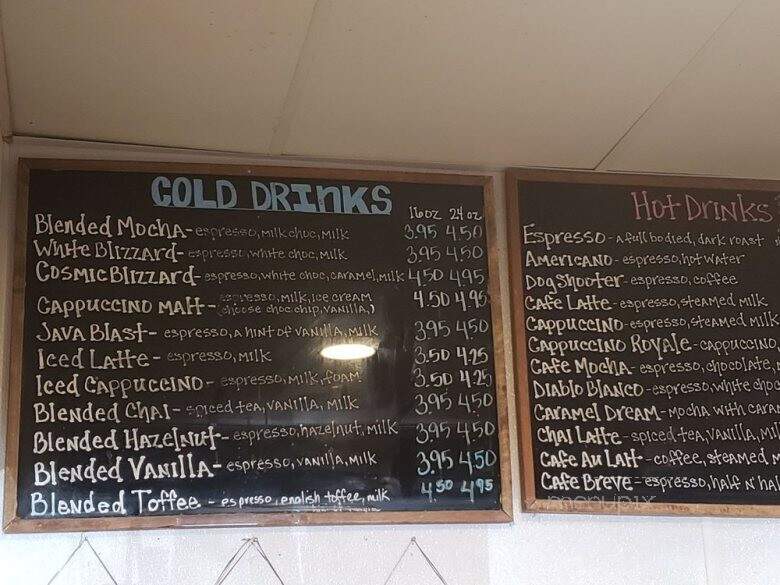 COLD DRINKS
16oz 24oz
Blended Mocha- espresso, milk choc, milk 3.95 4.50
White Blizzard- espresso, white choc, milk 3.95 4.50
Cosmic Blizzard- espresso, white choc, caramel, milk 4.50 4.95
Cappuccino Malt- espresso, milk, ice cream 4.50 4.95
(choose choc chip, vanilla,)
Java Blast- espresso, a hint of vanilla, milk 3.95 4.50
Iced Latte- espresso, milk 3.50 4.25
Iced Cappuccino- espresso, milk, foam 3.50 4.25
Blended Chai- spiced tea, vanilla, milk 3.95 4.50
Blended Hazelnut- espresso, hazelnut, milk 3.95 4.50
Blended Vanilla- espresso, vanilla, milk 3.95 4.50
Blended Toffee - espresso, english toffee, milk 4.50 4.95
Hot Drinks
Espresso- a full bodied, dark roast
Americano- espresso, hot water
Dog Shooter- espresso, coffee
Cafe Latte- espresso, steamed milk
Cappuccino- espresso, steamed milk
Cappuccino Royale- cappuccino,
Cafe Mocha- espresso, chocolate,
Diablo Blanco- espresso, white choc
Caramel Dream- mocha with cara
Chai Latte- spiced tea, vanilla, mil
Cafe Au Lait- coffee, steamed m
Cafe Breve- espresso, half n' hal
menupix